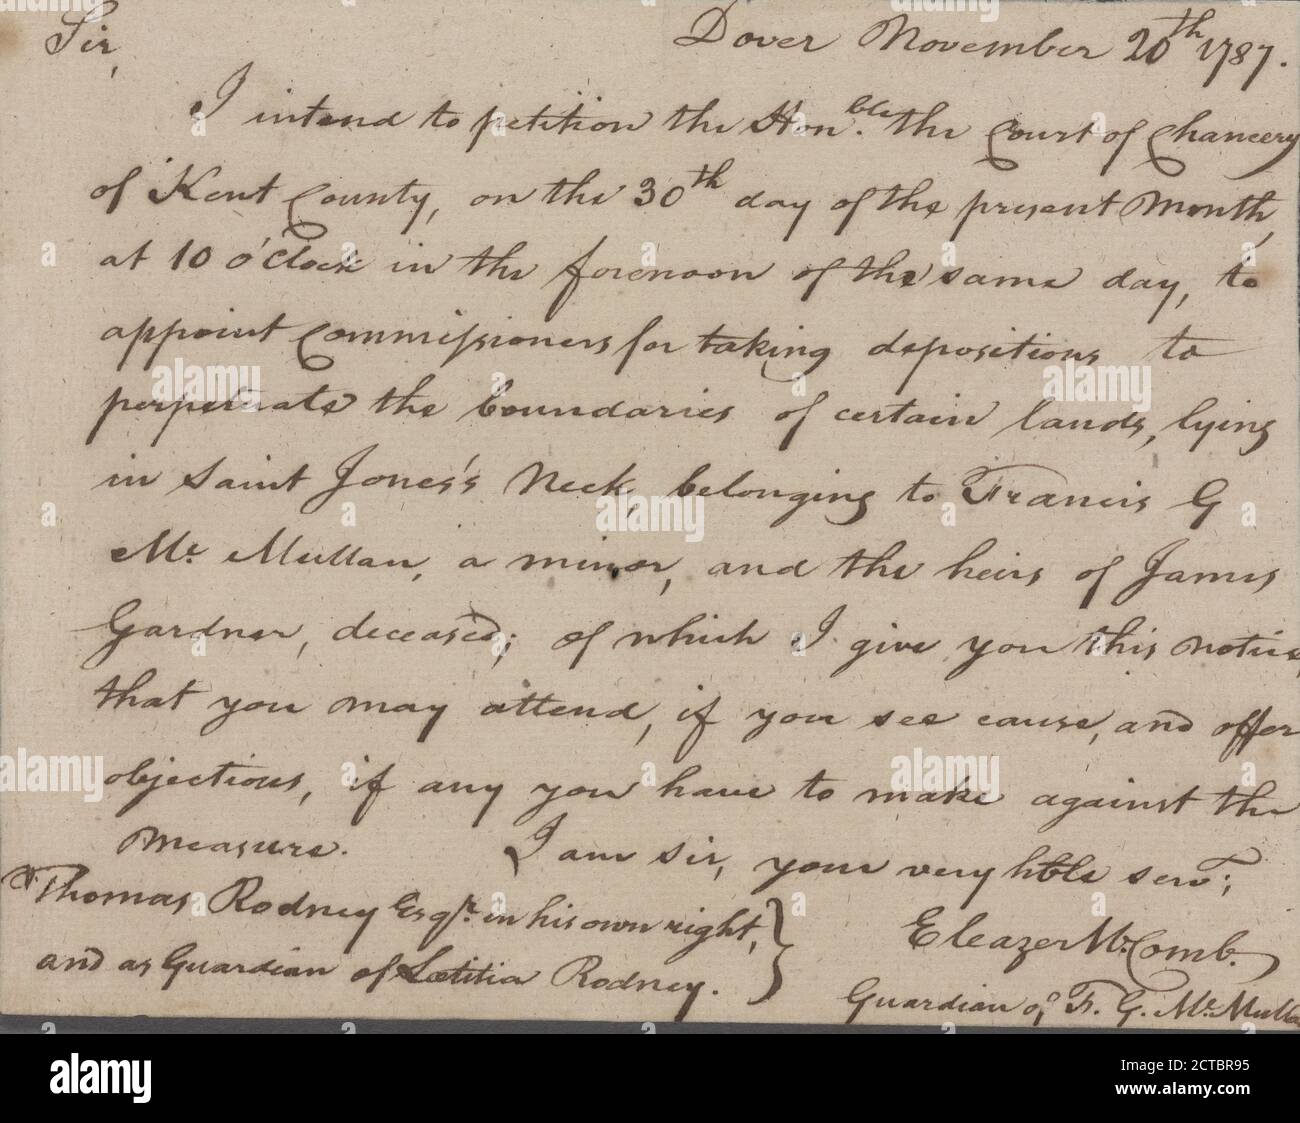 Sir,
Dover November 20th 1787.
I intend to petition the Honble. the Court of Chancery
of Kent County, on the 30th day of the present Month,
at 10 o'Clock in the forenoon of the same day, to
appoint Commissioners for taking depositions to
perpetuate the boundaries of certain lands, lying
in Saint Jones's Neck, belonging to Francis G
Mc. Mullan, a minor, and the heirs of James
Gardner, deceased; of which I give you this notice,
that you may attend, if you see cause, and offer
objections, if any you have to make against the
measure. I am sir, your very hble servt;
Thomas Rodney Esqr. in his own right,
and as Guardian of Lætitia Rodney.
Eleazer McComb.
Guardian of F. G. Mc Mullan
alamy
Image ID: 2CTBR95
www.alamy.com